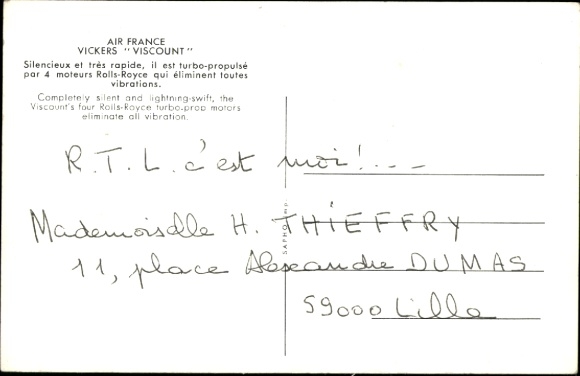 AIR FRANCE
VICKERS "VISCOUNT"
Silencieux et très rapide, il est turbo-propulsé
par 4 moteurs Rolls-Royce qui éliminent toutes
vibrations.
Completely silent and lightning-swift, the
Viscount's four Rolls-Royce turbo-prop motors
eliminate all vibration.
R.T.L. c'est moi!...
Mademoiselle H. THIEFFRY
11, place Alexandre DUMAS
59000 Lille